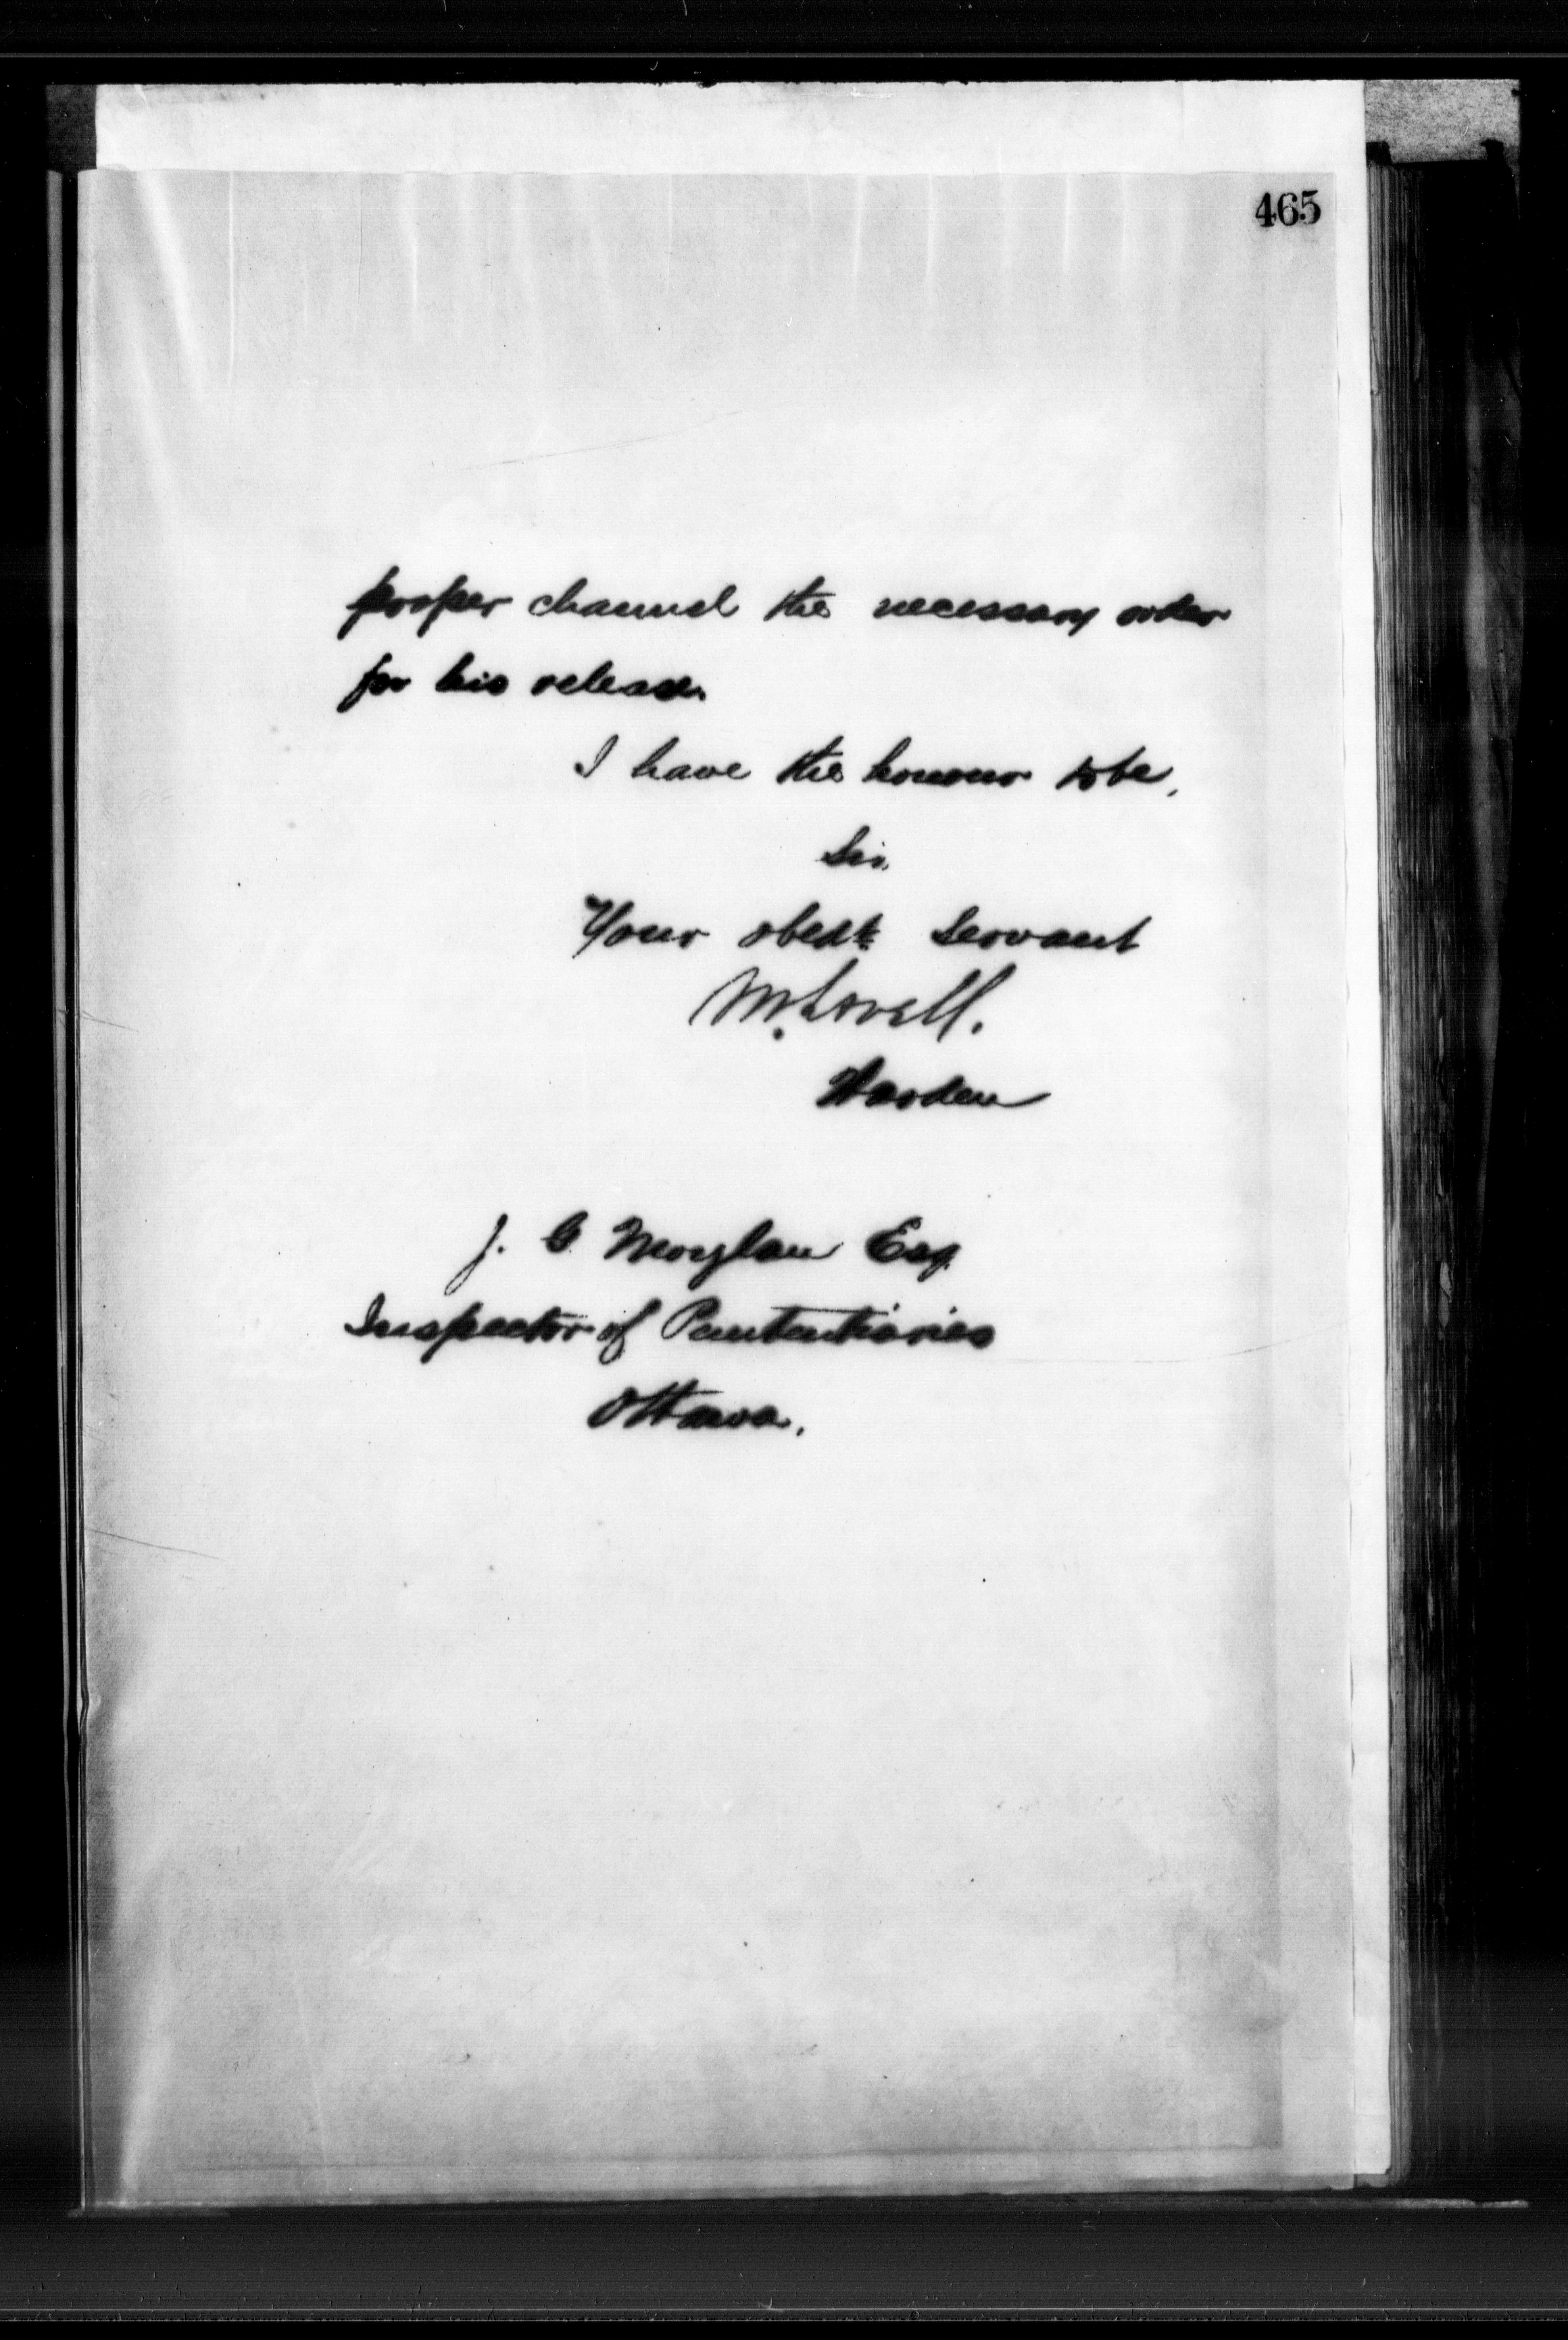 465
proper channel the necessary order
for his release.
I have the honour to be,
Sir,
Your obedt. Servant
M. Lavell.
Warden
J. G. Moylan Esq.
Inspector of Penitentiaries
Ottawa.